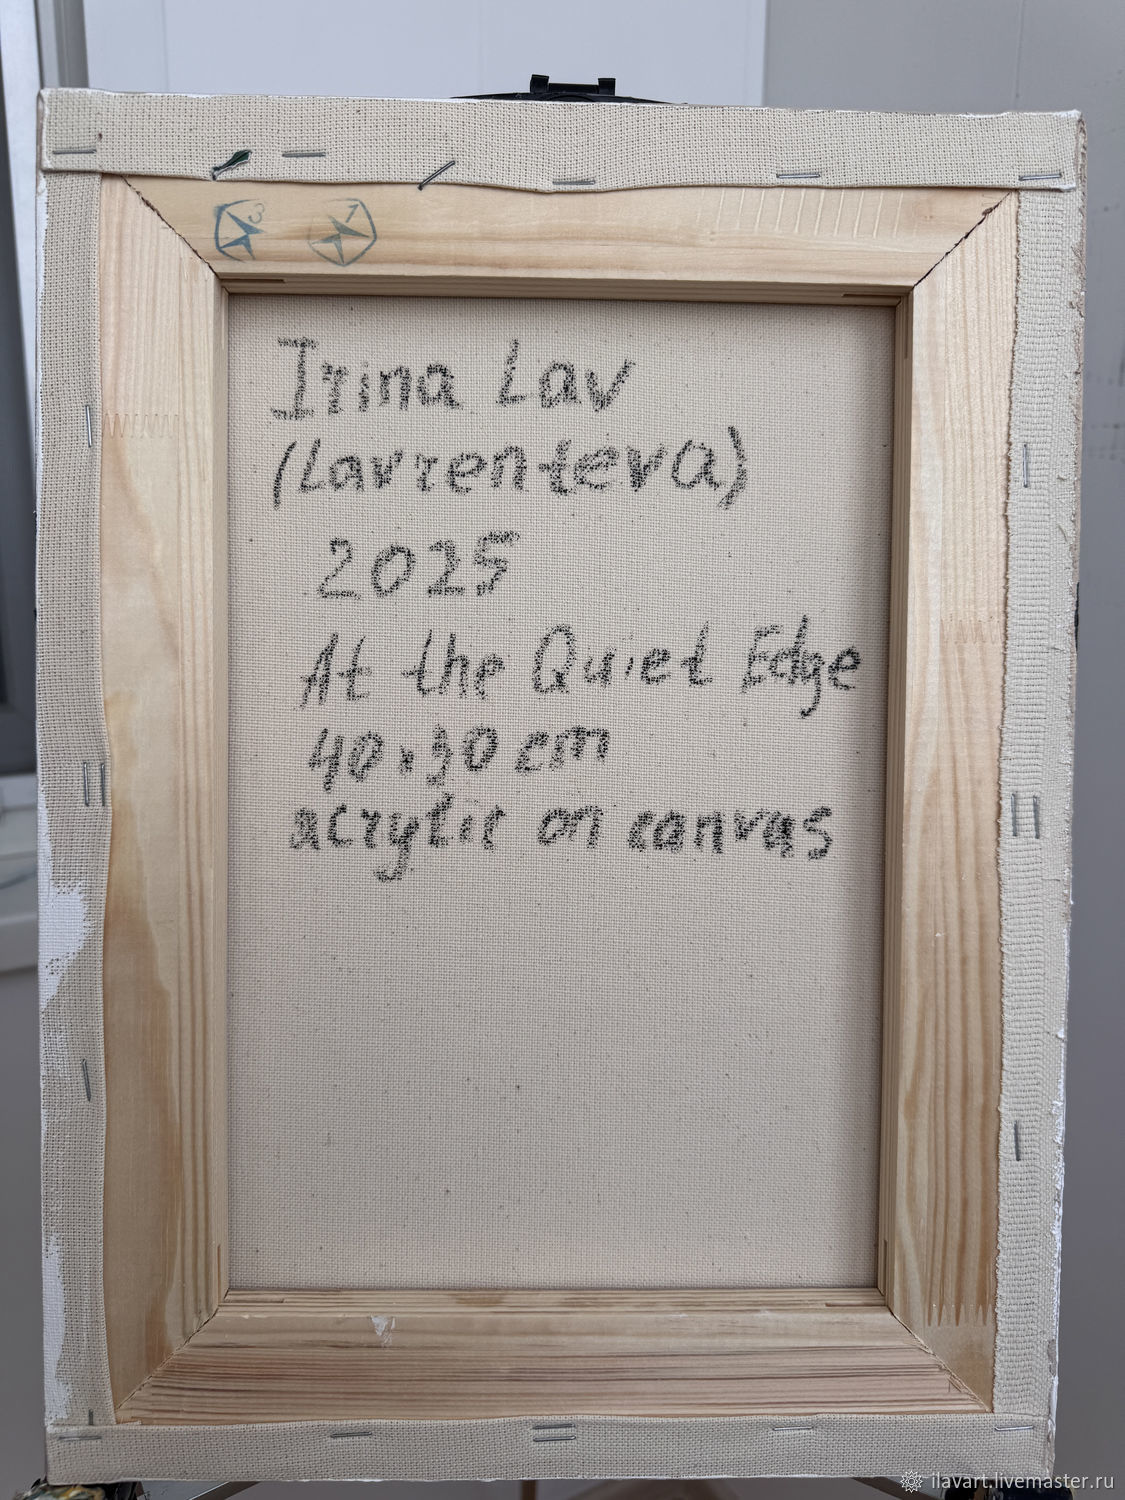 3 1
Irina Lav
(Lavrenteva)
2025
At the Quiet Edge
40x30 cm
acrylic on canvas
ilavart.livemaster.ru